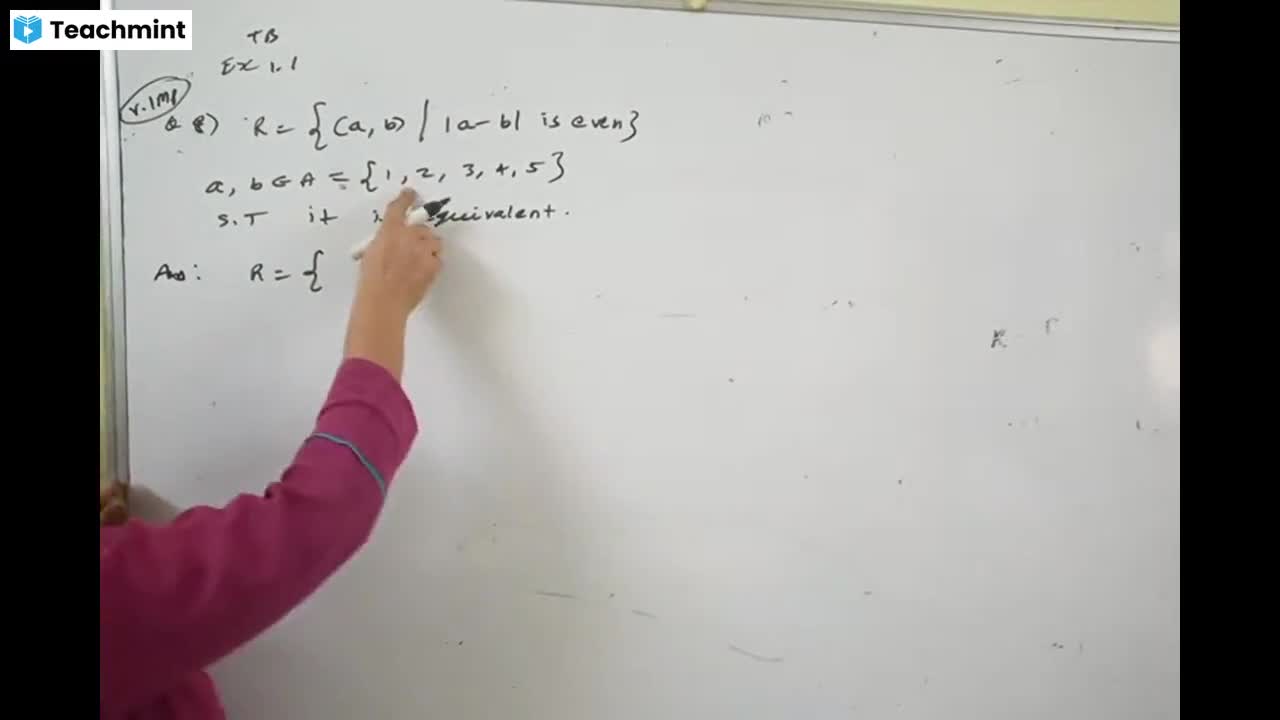 Teachmint
TB
Ex 1.1
v.Imp
Q 8) R = {(a, b) / |a - b| is even}
a, b ∈ A = {1, 2, 3, 4, 5}
S.T it is equivalent.
Ans: R = {
R